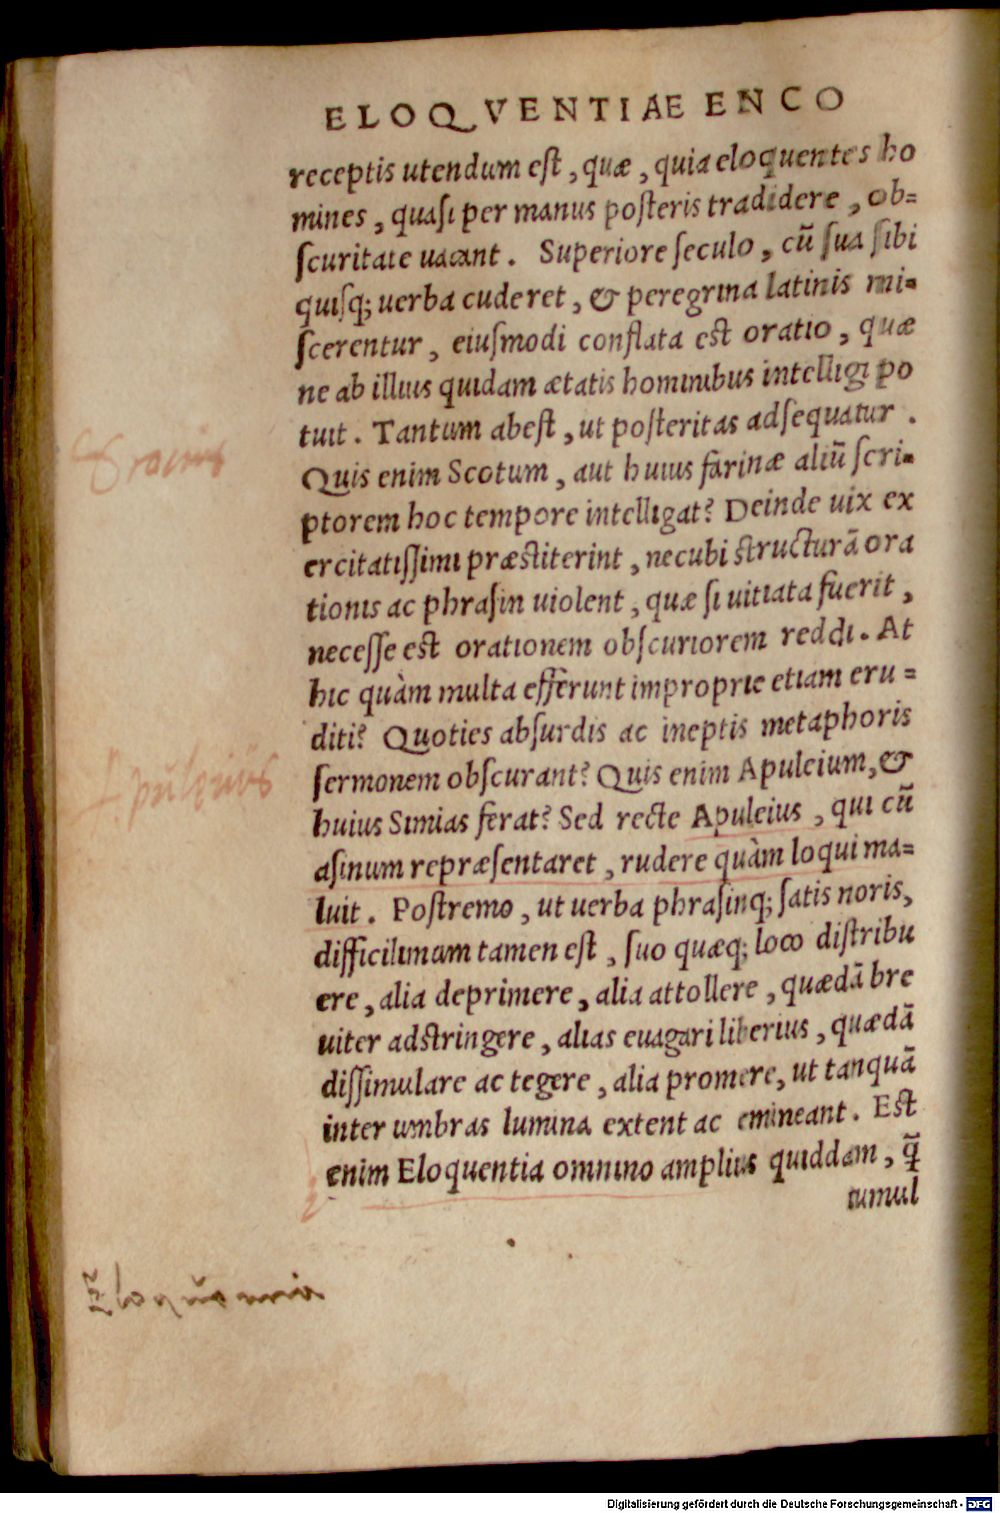 ELOQVENTIAE ENCO
receptis utendum eſt, quæ, quia eloquentes ho
mines, quaſi per manus poſteris tradidere, ob-
ſcuritate uacant. Superiore ſeculo, cũ ſua ſibi
quiſq; uerba cuderet, & peregrina latinis mi-
ſcerentur, eiuſmodi conflata eſt oratio, quæ
ne ab illius quidam ætatis hominibus intelligi po
tuit. Tantum abeſt, ut poſteritas adſequatur.
Quis enim Scotum, aut huius farinæ aliũ ſcri-
ptorem hoc tempore intelligat? Deinde uix ex
ercitatiſſimi præſtiterint, necubi ſtructurã ora
tionis ac phraſin uiolent, quæ ſi uitiata fuerit,
neceſſe eſt orationem obſcuriorem reddi. At
hic quàm multa efferunt improprie etiam eru-
diti? Quoties abſurdis ac ineptis metaphoris
ſermonem obſcurant? Quis enim Apuleium, &
huius Simias ferat? Sed recte Apuleius, qui cũ
aſinum repræſentaret, rudere quàm loqui ma-
luit. Poſtremo, ut uerba phraſinq; ſatis noris,
difficilimam tamen eſt, ſuo quæq; loco diſtribu
ere, alia deprimere, alia attollere, quædã bre
uiter adſtringere, alias euagari liberius, quædã
diſſimulare ac tegere, alia promere, ut tanquã
inter umbras lumina extent ac emineant. Eſt
enim Eloquentia omnino amplius quiddam, q̃
tumul
Digitalisierung gefördert durch die Deutsche Forschungsgemeinschaft - DFG